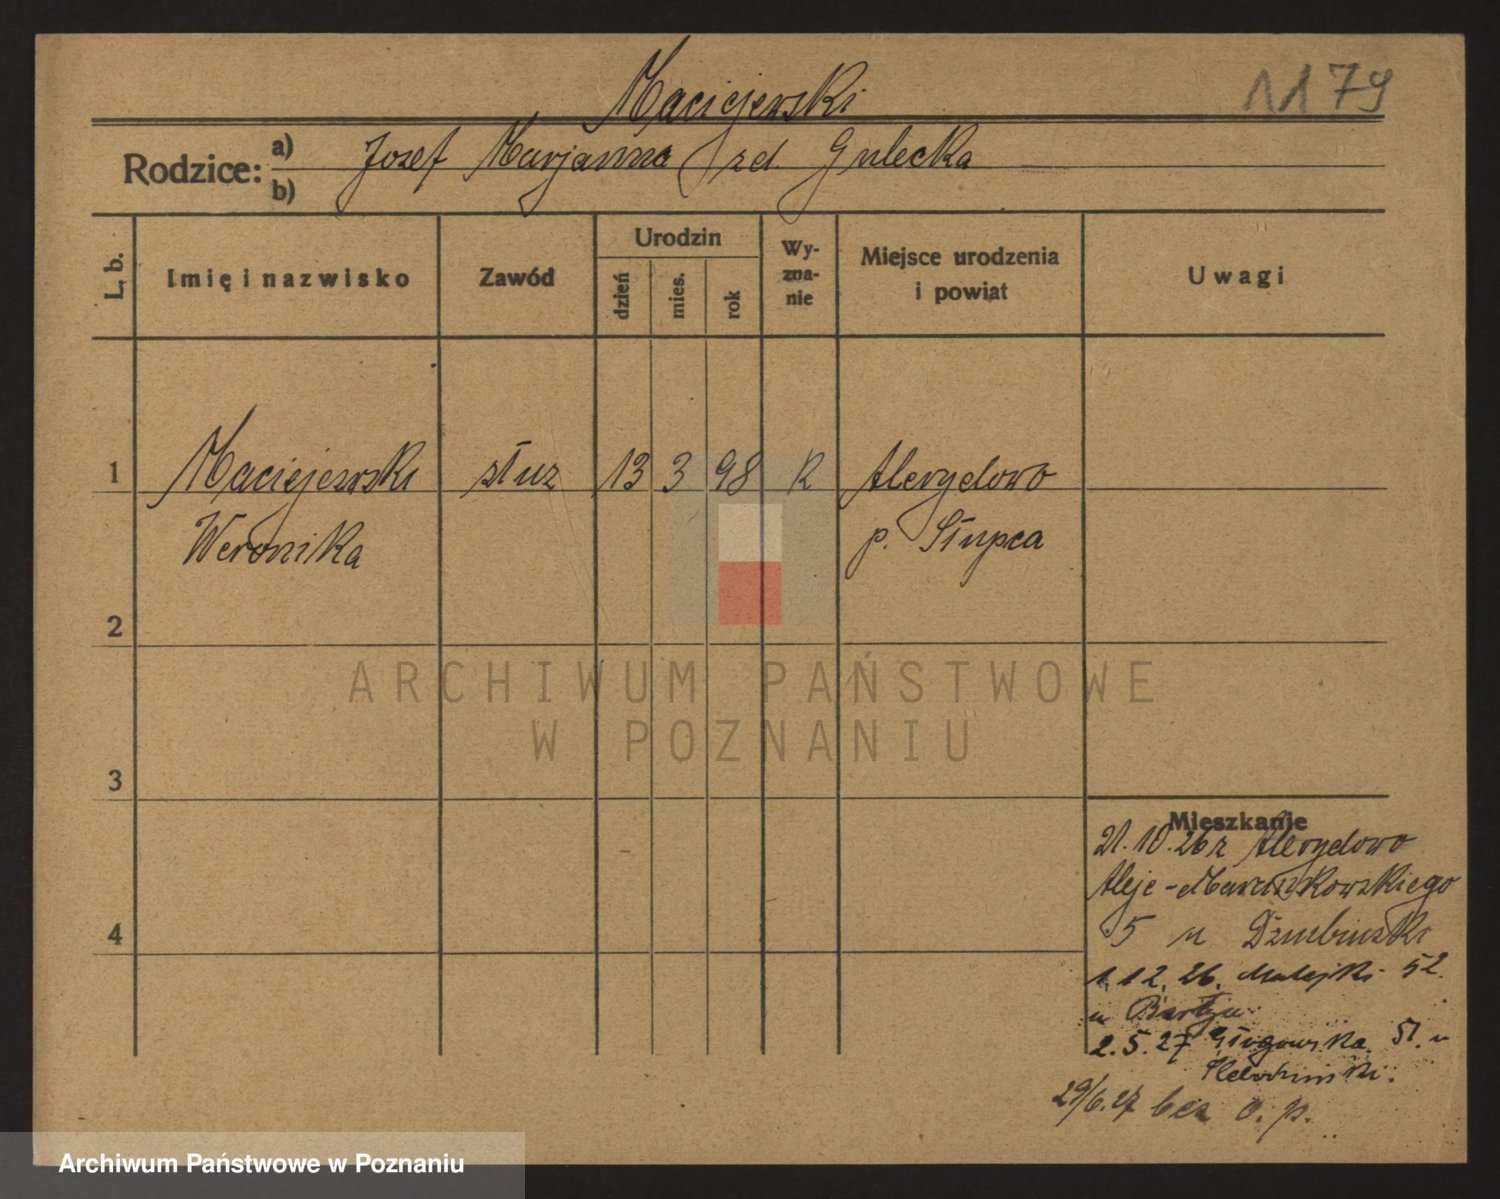 Maciejewski
1179
Rodzice: a) b) Josef Marjanna zd. Gulecka
L. b.
Imię i nazwisko
Zawód
Urodzin
dzień
mies.
rok
Wy-
zna-
nie
Miejsce urodzenia
i powiat
Uwagi
1 Maciejewski służ 13 3 98 R
Weronika p. Słupca
2
ARCHIWUM PAŃSTWOWE
W POZNANIU
3
Mieszkanie
21.10.26 r
Aleje - Marcinkowskiego
5 u
4
1.12.26. Matejki 52.
u
2.5.27 Głogowska 51. u
29/6.27 bez o. p.
Archiwum Państwowe w Poznaniu